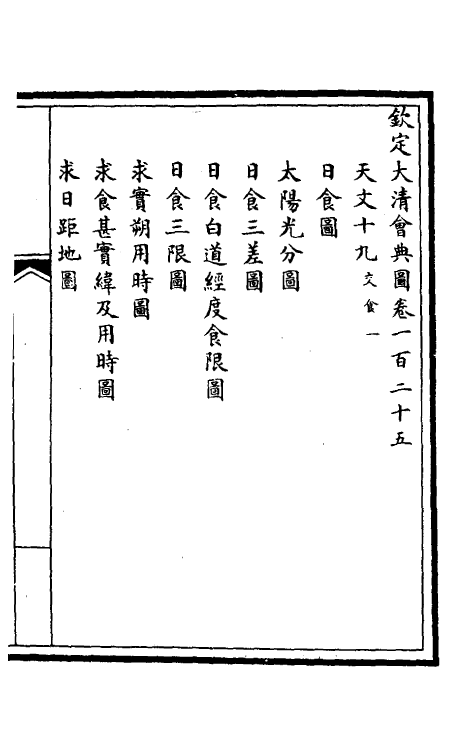 欽定大清會典圖卷一百二十五
天文十九交食一
日食圖
太陽光分圖
日食三差圖
日食白道經度食限圖
日食三限圖
求實朔用時圖
求食甚實緯及用時圖
求日距地圖